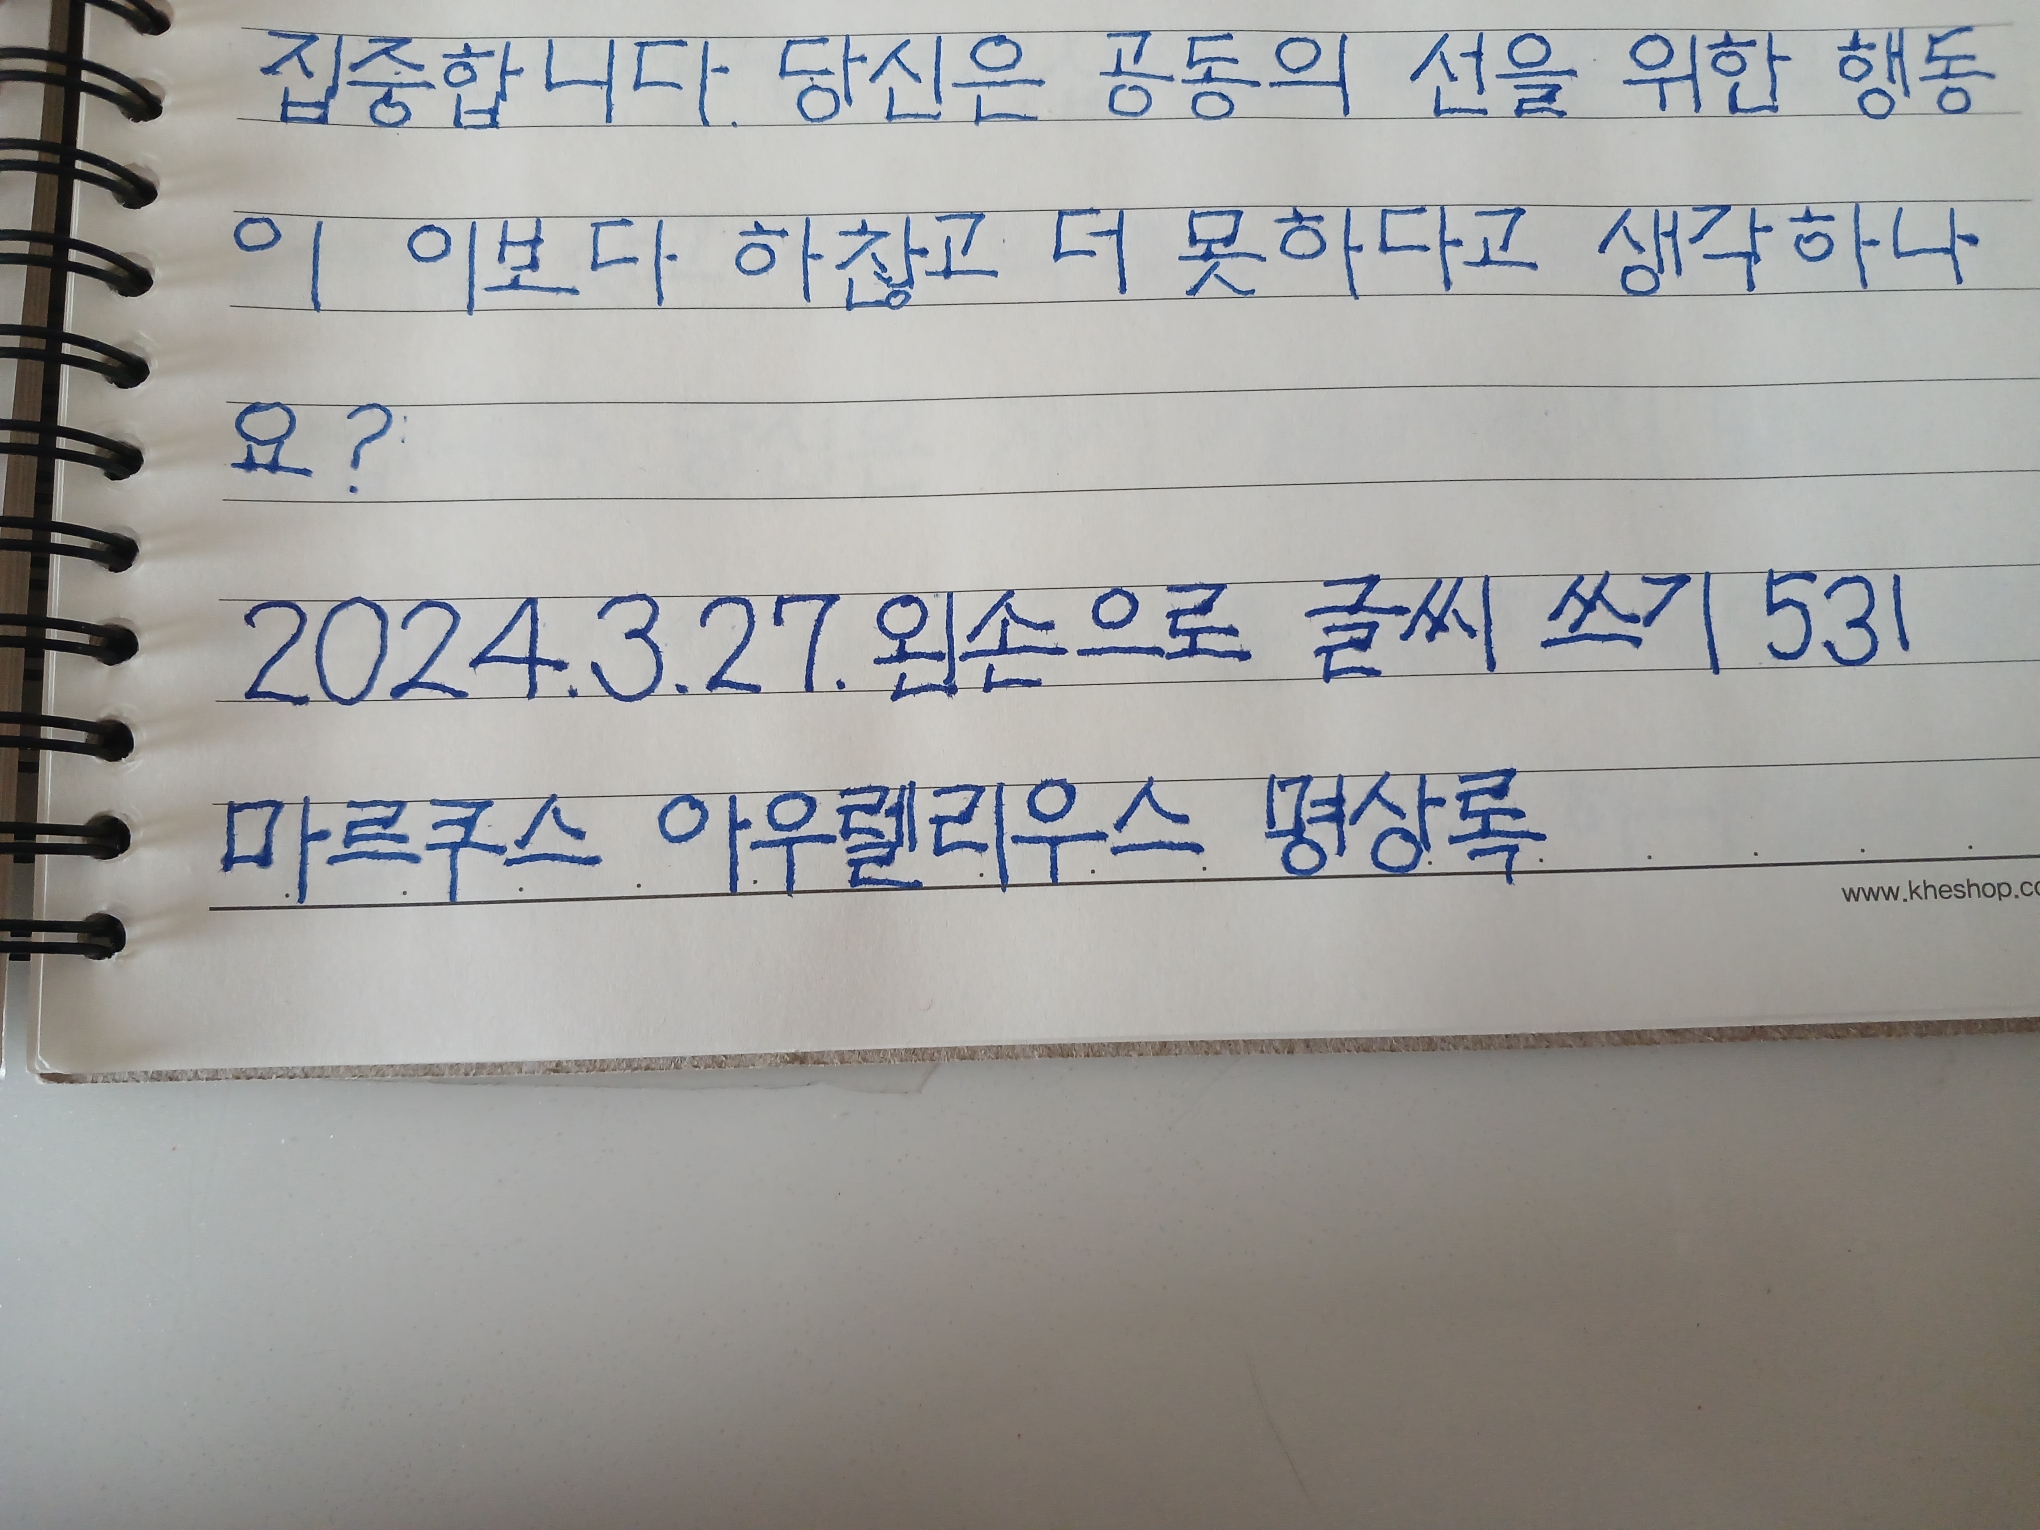 집중합니다. 당신은 공동의 선을 위한 행동
이 이보다 하찮고 더 못하다고 생각하나
요?
2024.3.27. 왼손으로 글씨 쓰기 531
마르쿠스 아우렐리우스 명상록
www.kheshop.co